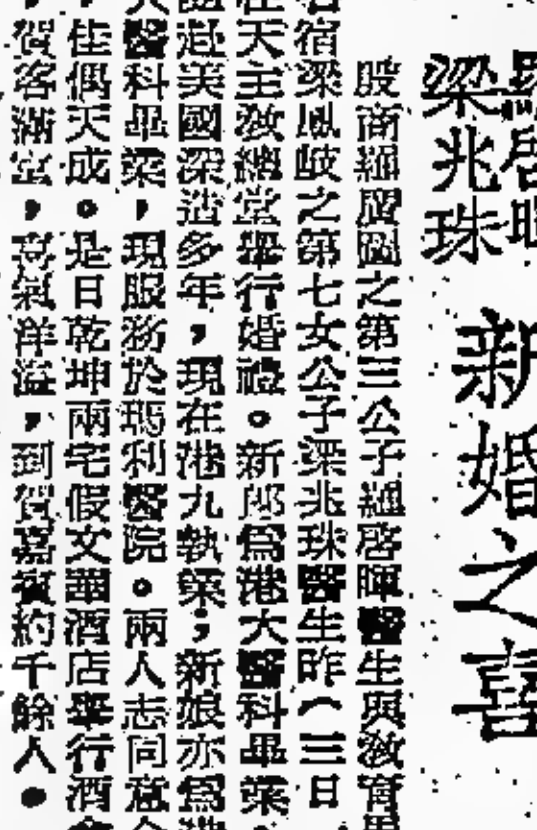 啓暉
梁兆珠
新婚之喜
殷商羅慶園之第三公子羅啓暉醫生與教育界
名宿梁鳳岐之第七女公子梁兆珠醫生昨(三日
在天主教總堂舉行婚禮。新郎爲港大醫科畢業,
赴美國深造多年,現在港九執業;新娘亦爲港
大醫科畢業,現服務於瑪利醫院。兩人志同意合
,佳偶天成。是日乾坤兩宅假文華酒店舉行酒會
,賀客滿堂,喜氣洋溢,到賀嘉賓約千餘人。